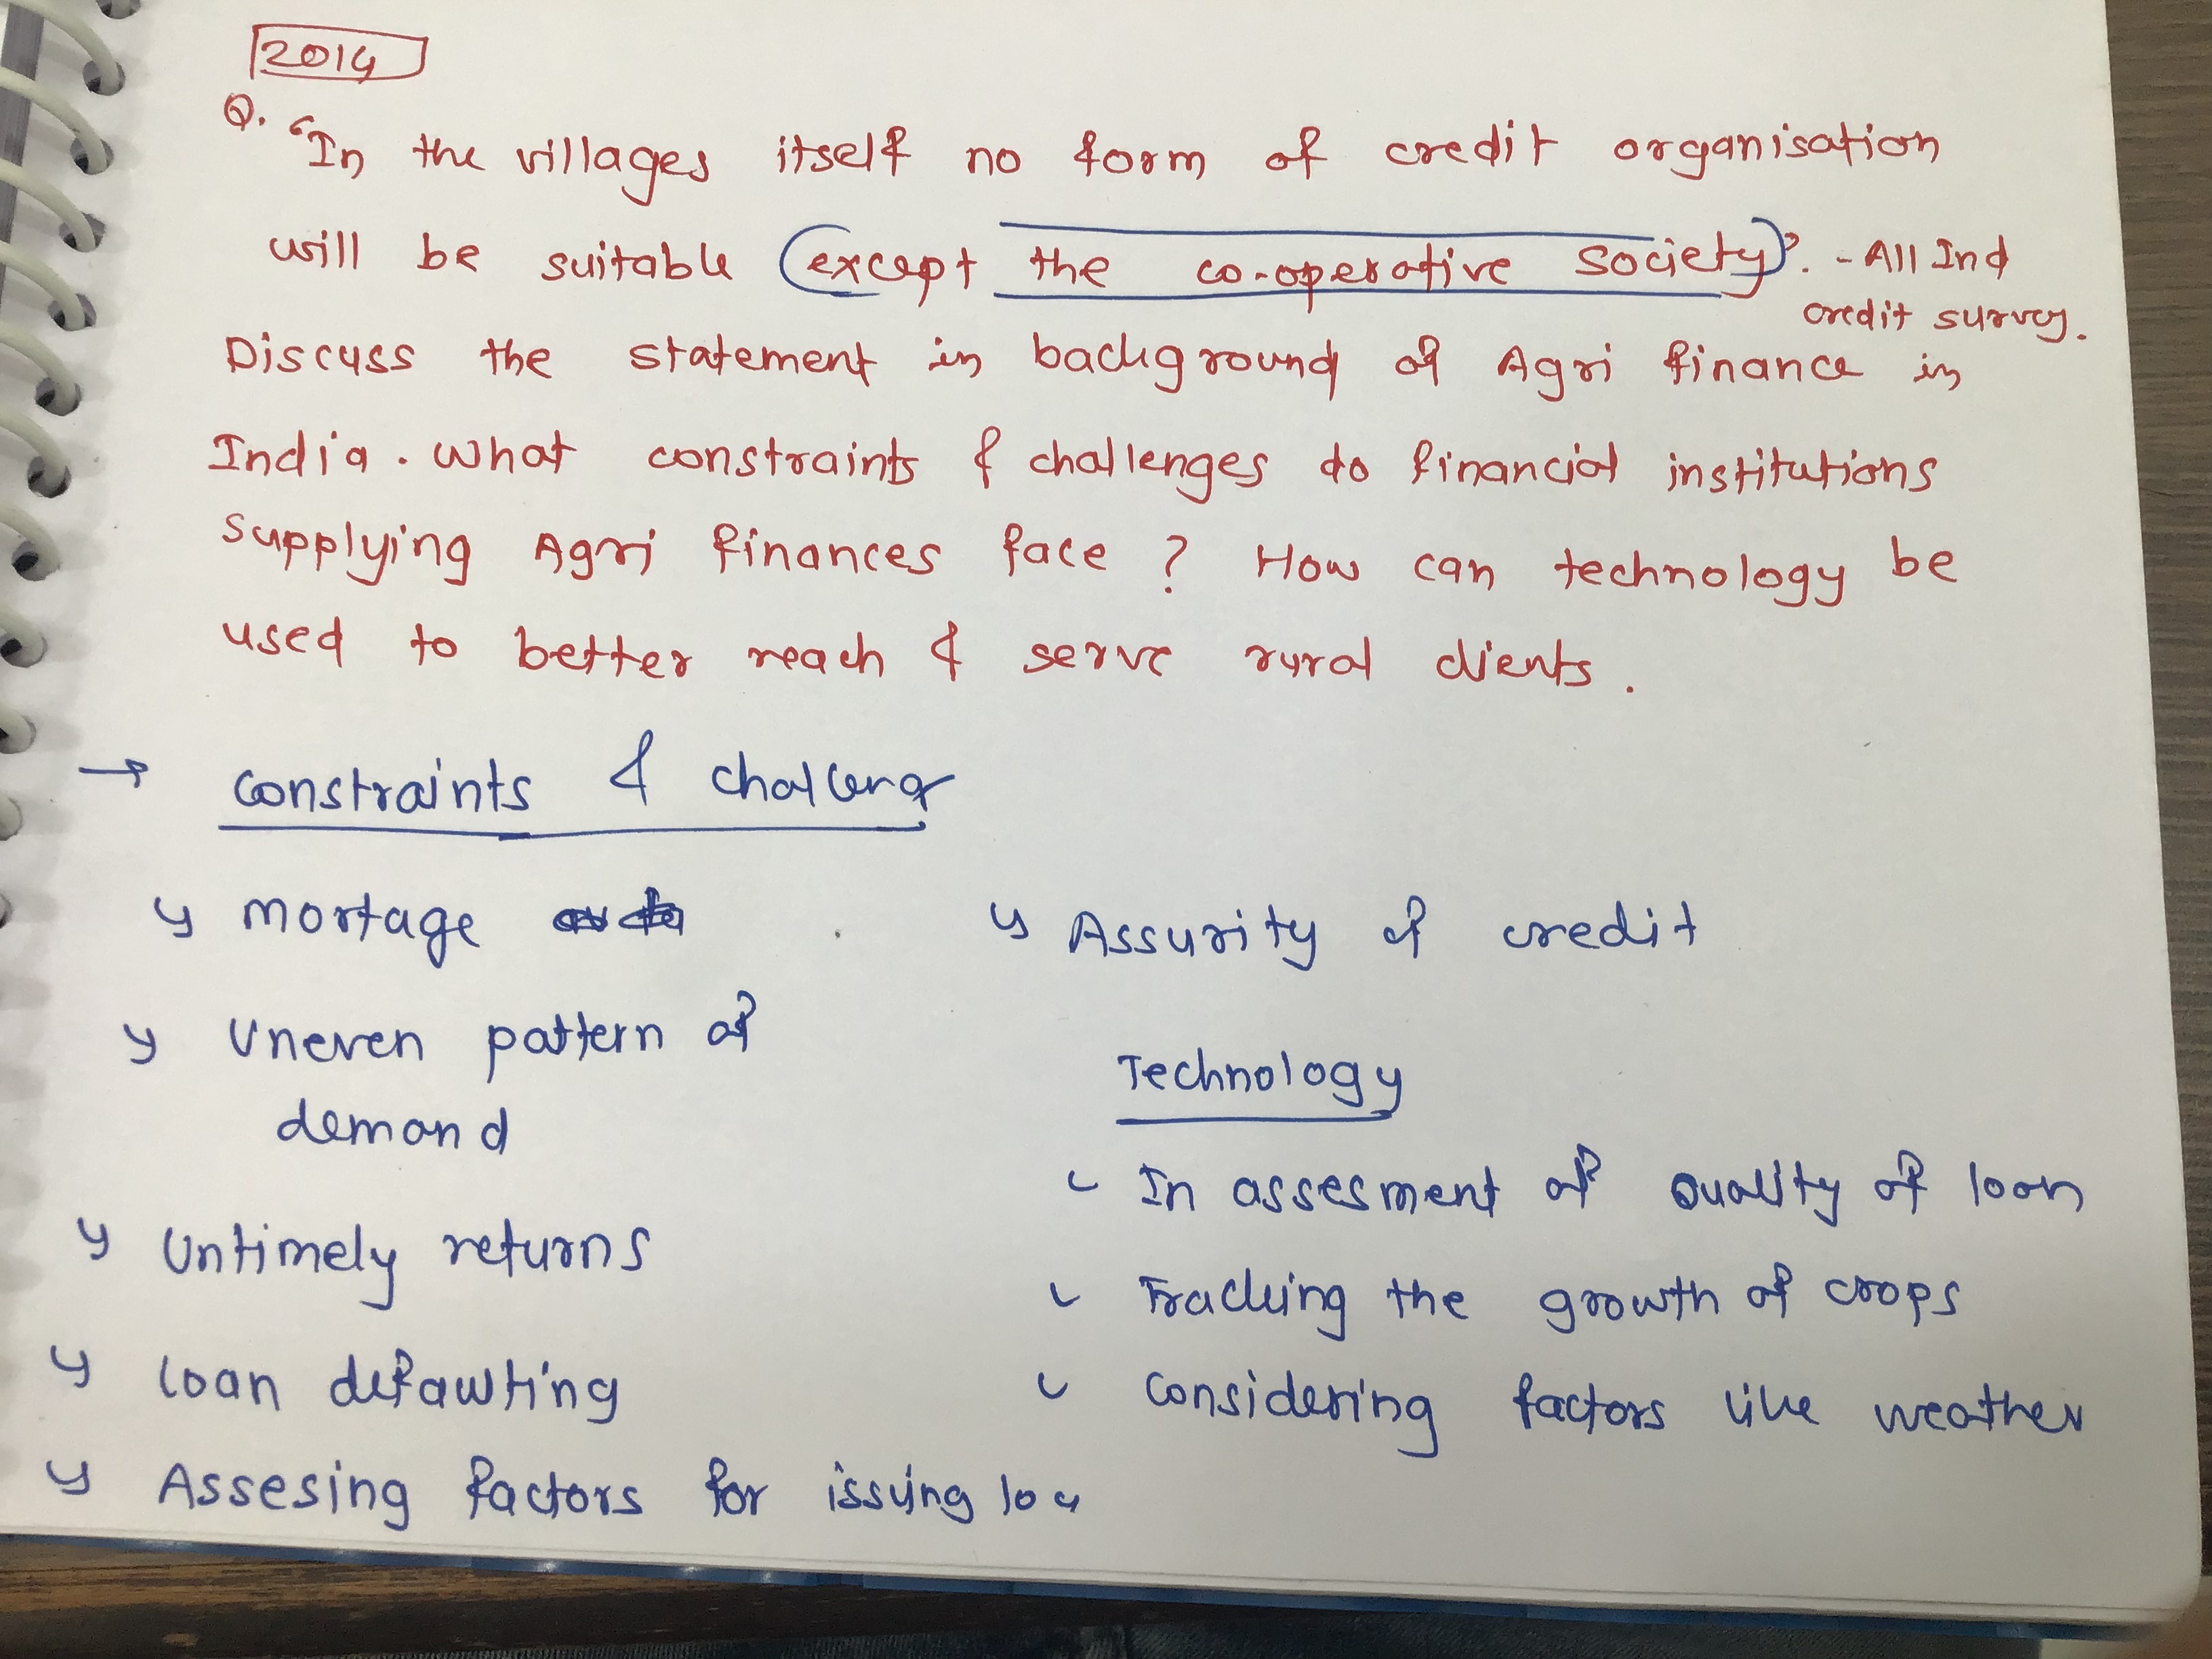 2014
Q. "In the villages itself no form of credit organisation
will be suitable except the co-operative society". - All Ind
credit survey.
Discuss the statement in background of Agri finance in
India. What constraints & challenges do financial institutions
supplying Agri finances face ? How can technology be
used to better reach & serve rural clients.
→ constraints & challeng
↳ mortage
↳ Assurity of credit
↳ Uneven pattern of
demand
Technology
↳ Untimely returns
- In assesment of quality of loan
- Tracking the growth of crops
↳ loan defawlting
- considering factors like weather
↳ Assesing factors for issuing loa